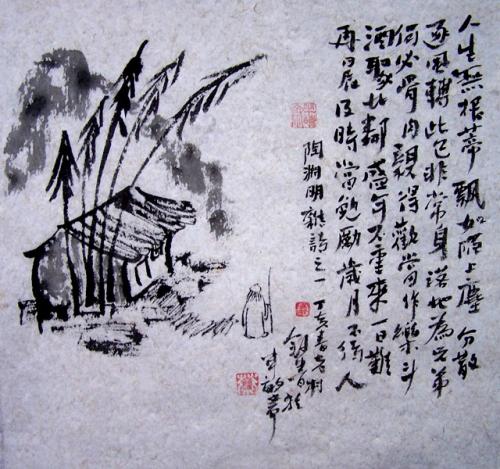 人生無根蒂飄如陌上塵分散
逐風轉此已非常身落地為兄弟
何必骨肉親得歡當作樂斗
酒聚比鄰盛年不重來一日難
再晨及時當勉勵歲月不待人
陶淵明雜詩之一
丁亥春